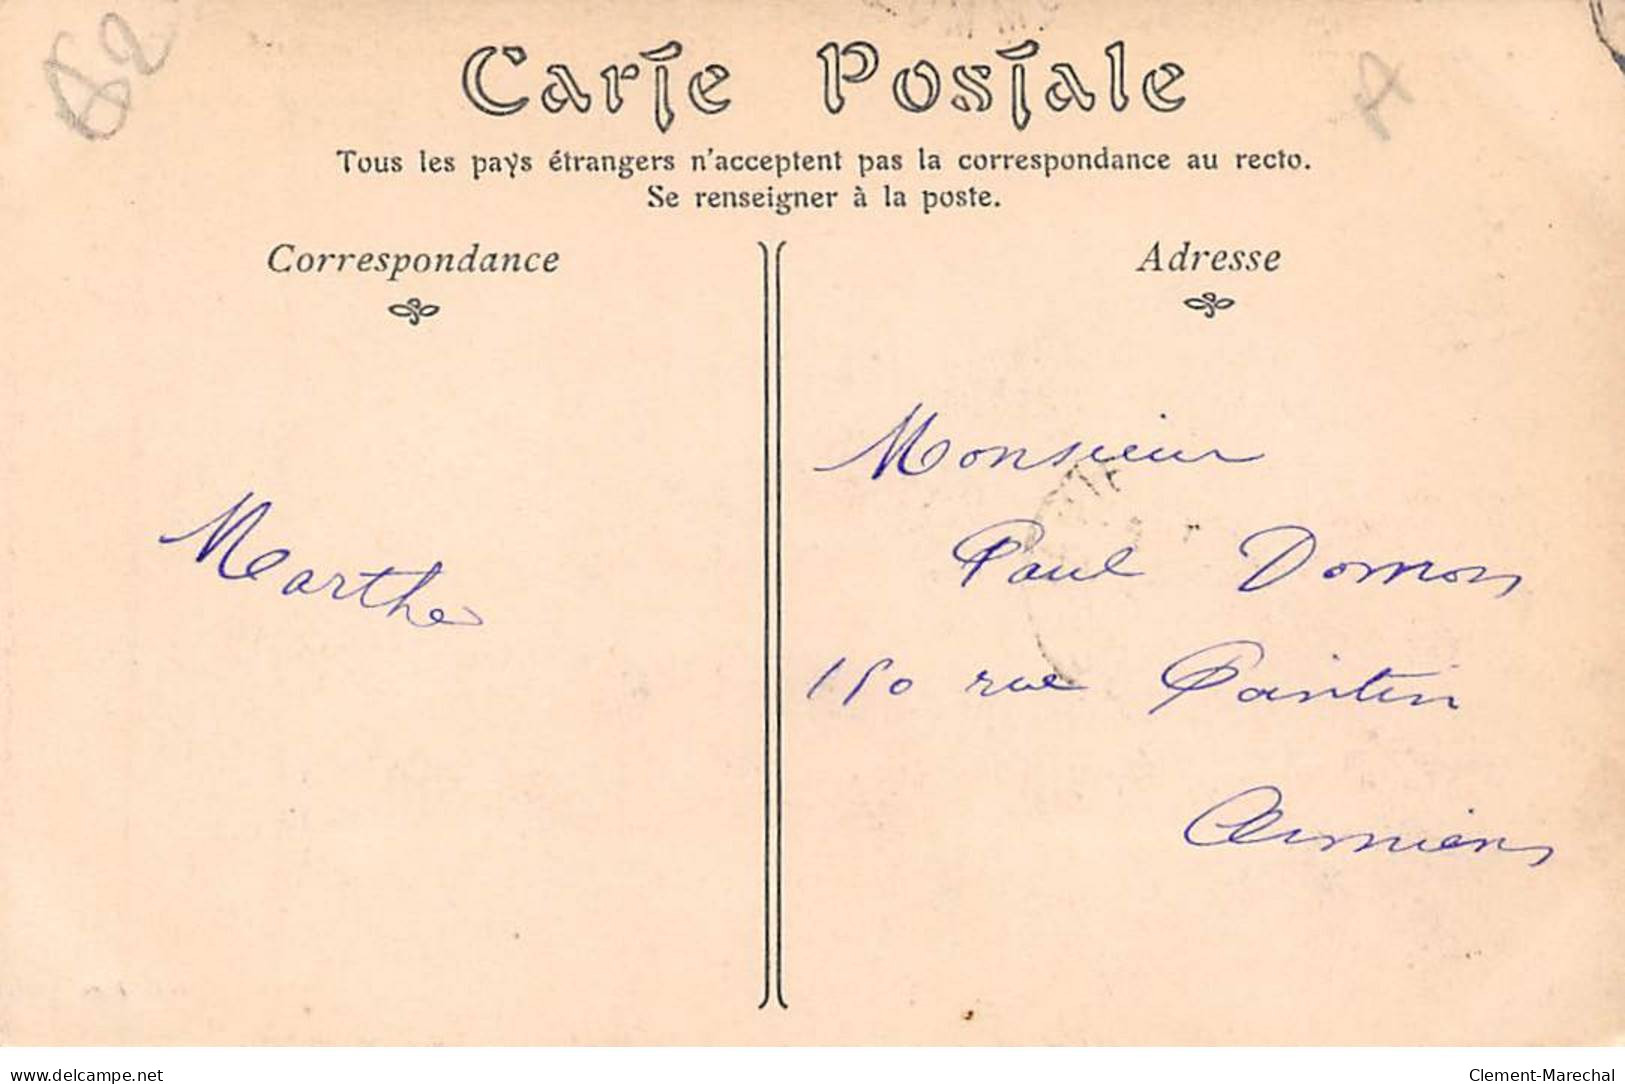 62
A
Carte Postale
Tous les pays étrangers n'acceptent pas la correspondance au recto.
Se renseigner à la poste.
Correspondance
Adresse
Marthe
Monsieur
Paul Domon
150 rue Pointin
Amiens
www.delcampe.net
Clement-Marechal